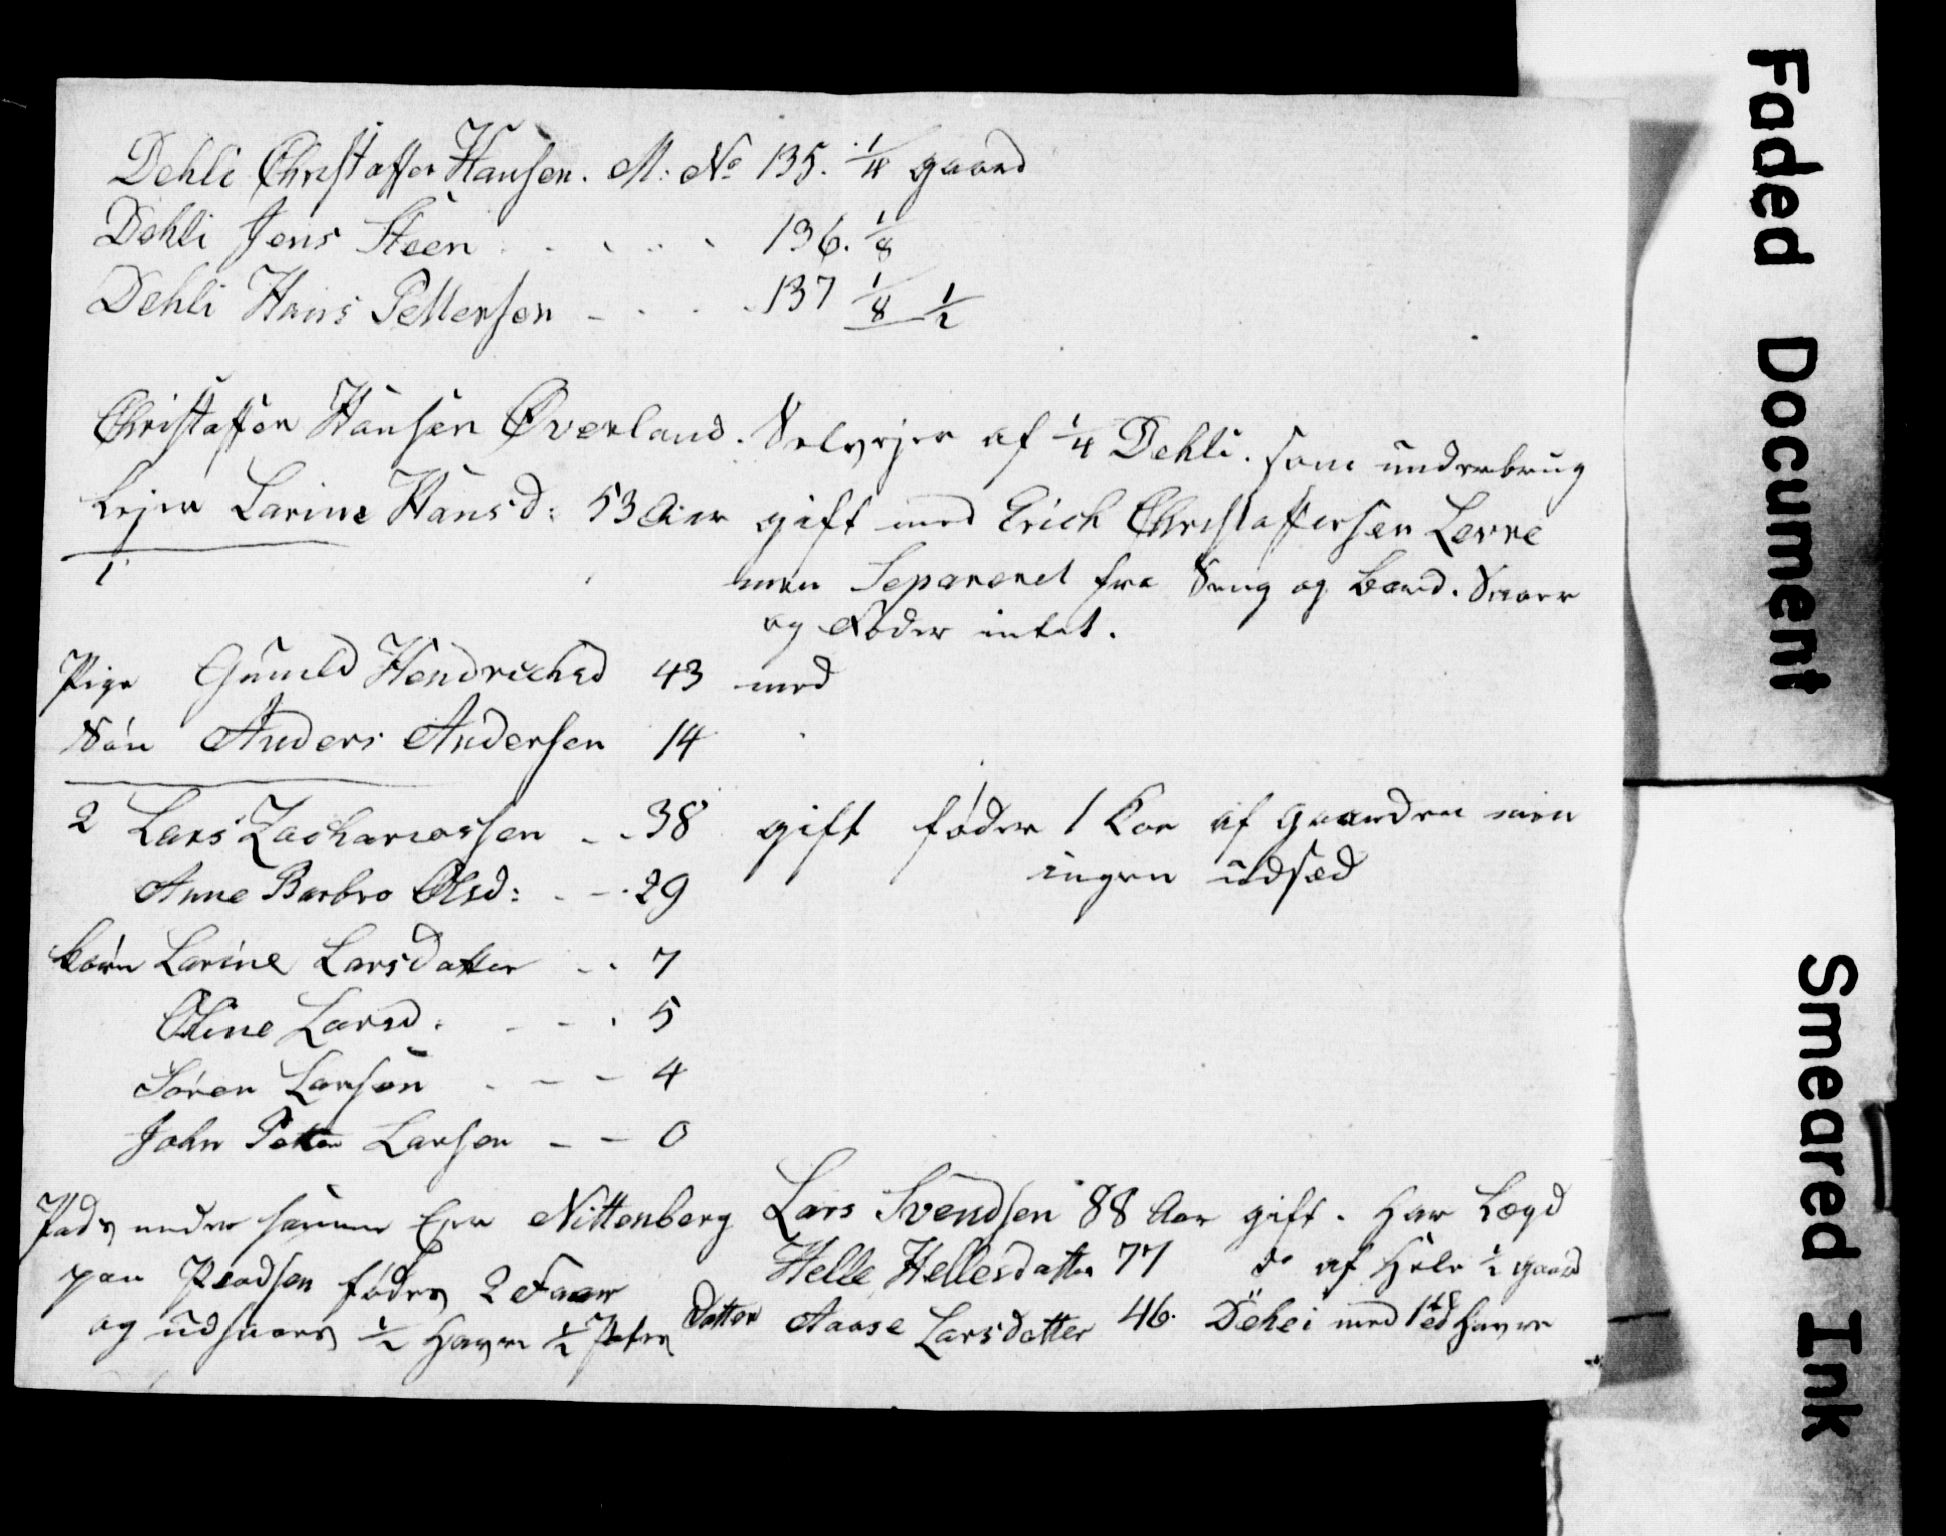 Dehli Christoffer Hansen. M: No 135. 1/4 gaard
Dehli Jens Steen . . . . 136. 1/8
Dehli Hans Pettersen - . . . 137 1/8 1/2
Christoffer Hansen Øverland. Selvejer af 1/4 Dehli. som underbrug
Lejer Larine Hansd: 53 Aar gift med Erich Christoffersen Lerne
1 men Separeret fra Seng og Bord. Saaer
og Føder intet.
Pige Gunild Hendrichsd 43 med
Søn Anders Andersen 14
2 Lars Zachariassen - - 38 gift føder 1 Koe af gaarden men
ingen udsæd
Anne Barbro Olsd: - - 29
børn Larine Larsdatter - . 7
Oline Larsd. - - . 5
Søren Larsen - - - 4
John Petter Larsen - - 0
Plads under samme Eier Nittenberg Lars Svendsen 88 Aar gift. har Lægd
paa Pladsen fødes 2 Faar Helle Hellesdatter 77 do af hele 1/2 gaard
og udsaaes 1/2 Havre 1/2 Datter Aaase Larsdatter 46. Dehli med 1 Havre
Faded Document
Smeared Ink